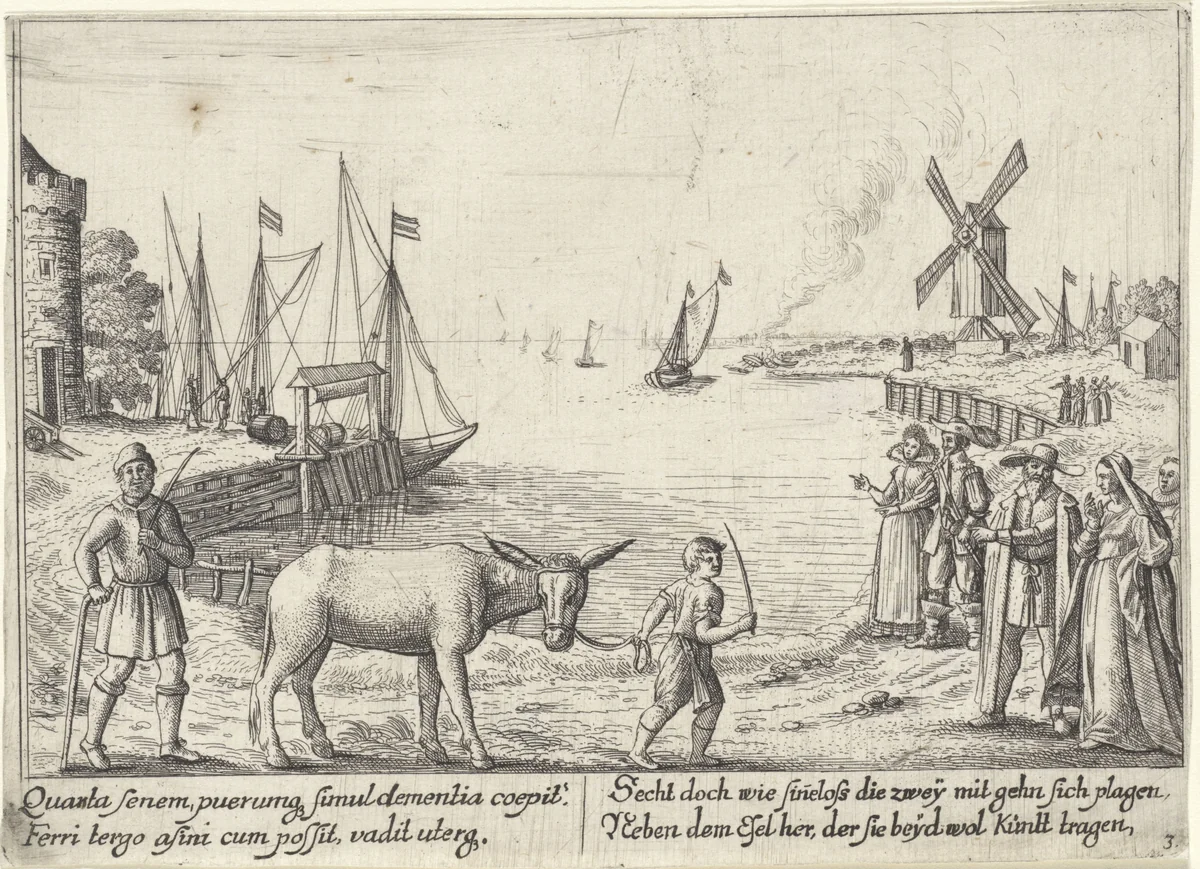 Quanta senem, puerumq, simul dementia coepit!
Ferri tergo asini cum possit, vadit uterq.
Secht doch wie siñeloss die zweÿ mit gehn sich plagen,
Neben dem Esel her, der sie beÿd wol Kúntt tragen,
3.